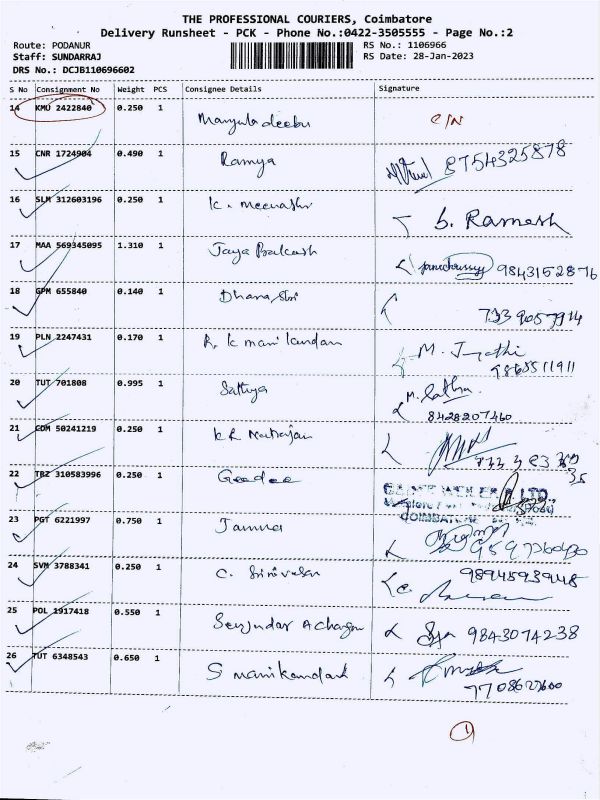 THE PROFESSIONAL COURIERS, Coimbatore
Delivery Runsheet - PCK - Phone No.:0422-3505555 - Page No.:2
Route: PODANUR RS No.: 1106966
Staff: SUNDARRAJ RS Date: 28-Jan-2023
DRS No.: DCJB110696602
S No Consignment No Weight PCS Consignee Details Signature
14 KMU 2422840 0.250 1 Manjula deebu C/N
15 CNR 1724904 0.490 1 Ramya 8754325878
16 SLM 312603196 0.250 1 K. meenashr b. Ramesh
17 MAA 569345095 1.310 1 Jaya Prakash 9843152876
18 GPM 655840 0.140 1 Dhana Sri 7339057914
19 PLN 2247431 0.170 1 R. K manikandan M. Jyothi
9865511911
20 TUT 701808 0.995 1 Sathya M. Satha
8428207460
21 CDM 50241219 0.250 1 K R Natrajan
22 TRZ 310583996 0.250 1 Geedee
COIMBATORE
23 PGT 6221997 0.750 1 Jamna
24 SVM 3788341 0.250 1 C. Srinivasan 9894593948
25 POL 1917418 0.550 1 9843074238
26 TUT 6348543 0.650 1 S manikandan
7708627600
1